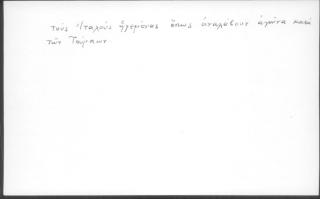 τοὺς Ἰταλοὺς ἡγεμόνας ὅπως ἀναλάβουν ἀγῶνα κατὰ
τῶν Τούρκων